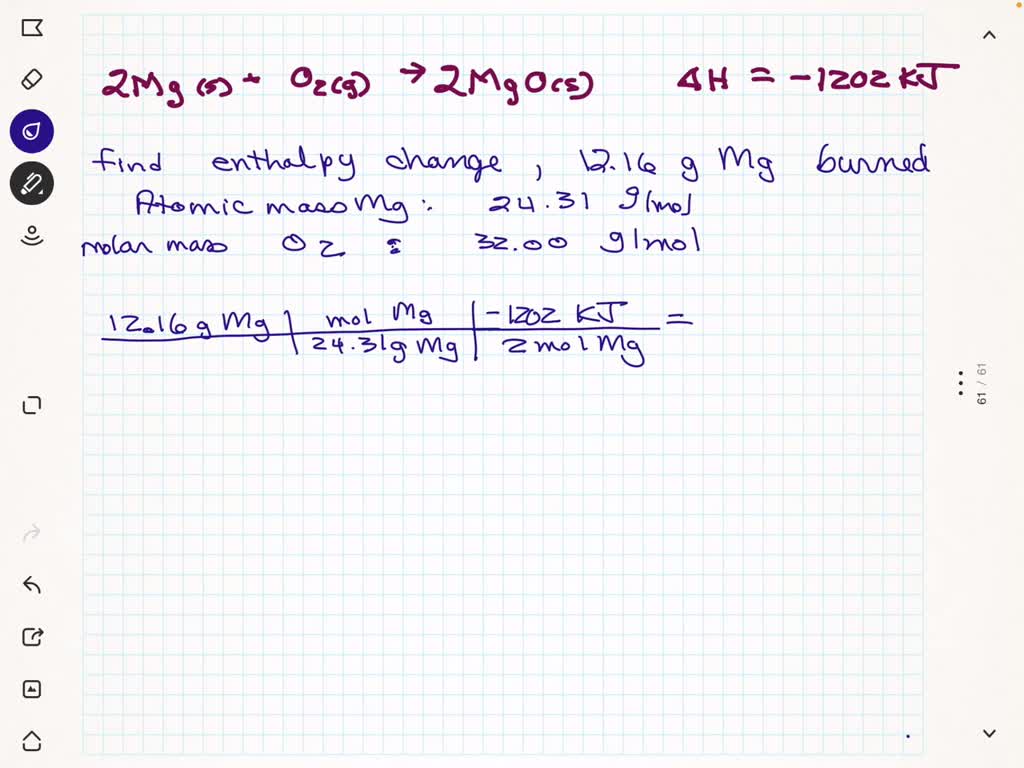 2Mg(s) + O2(g) → 2MgO(s) ΔH = -1202 KJ
find enthalpy change, 12.16 g Mg burned
Atomic mass Mg: 24.31 g/mol
molar mass O2 : 32.00 g/mol
12.16 g Mg | mol Mg | -1202 KJ =
24.31g Mg | 2 mol Mg
61 / 61